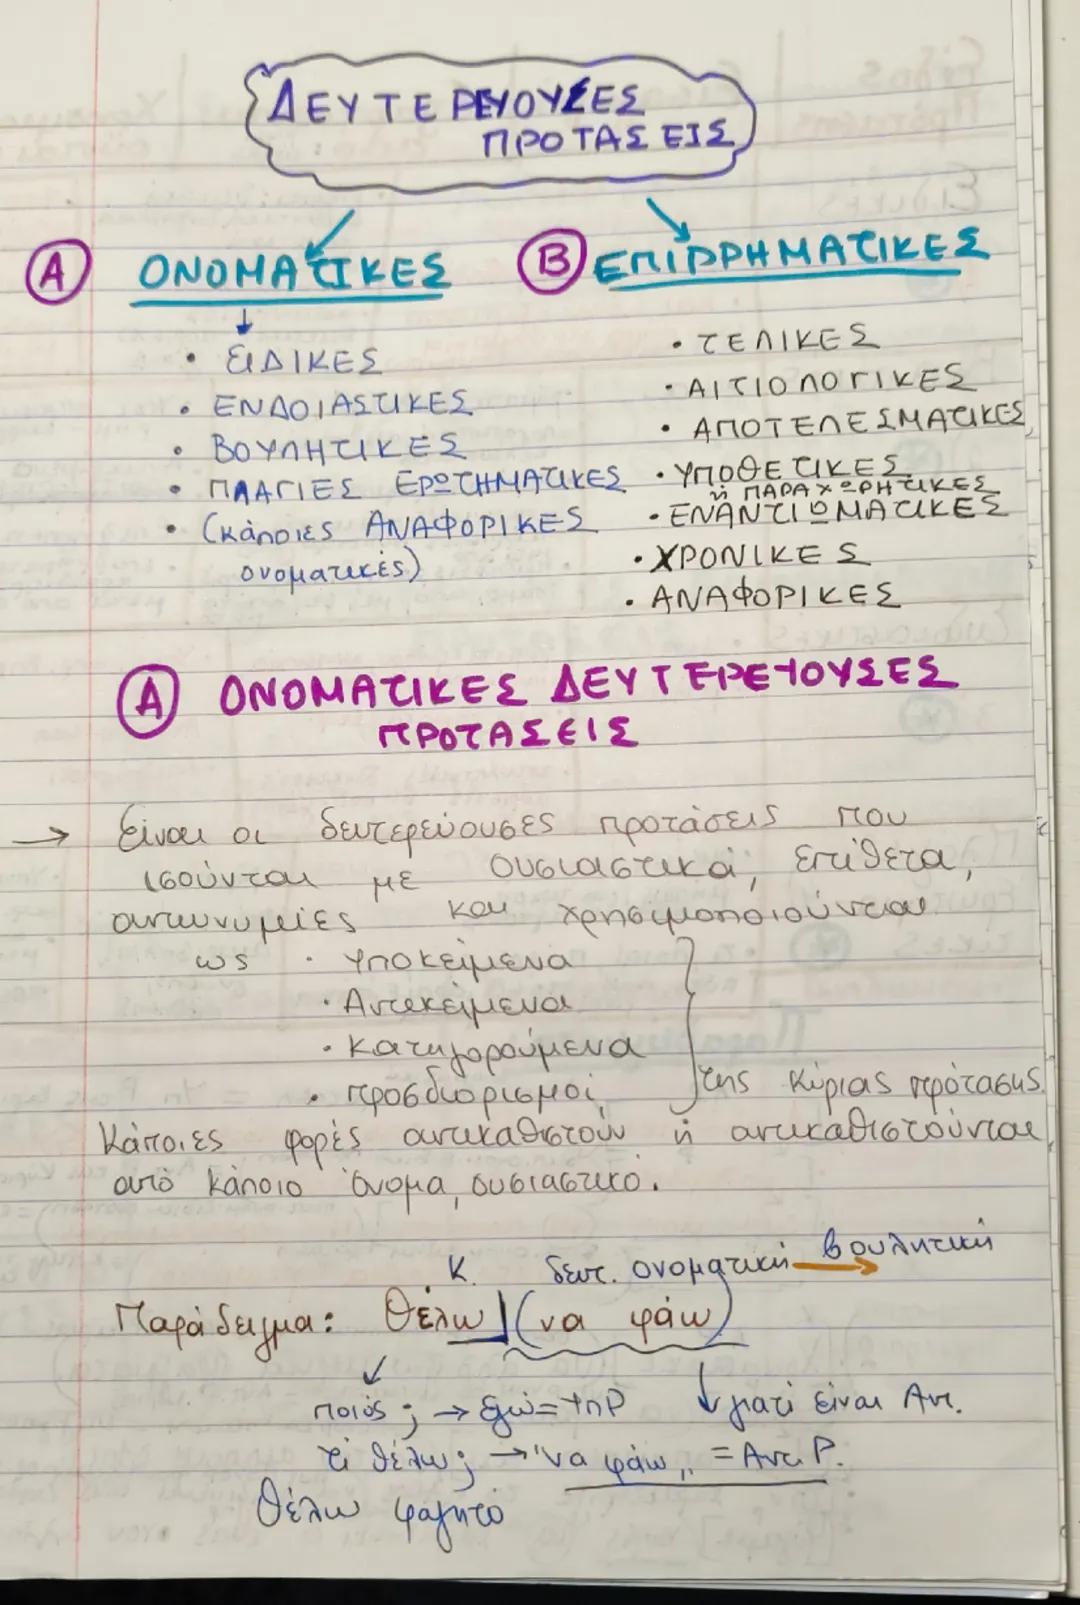 ΔΕΥΤΕΡΕΥΟΥΣΕΣ
ΠΡΟΤΑΣΕΙΣ
Α ΟΝΟΜΑΤΙΚΕΣ
Β ΕΠΙΡΡΗΜΑΤΙΚΕΣ
• ΕΙΔΙΚΕΣ
• ΕΝΔΟΙΑΣΤΙΚΕΣ
• ΒΟΥΛΗΤΙΚΕΣ
• ΠΛΑΓΙΕΣ ΕΡΩΤΗΜΑΤΙΚΕΣ
• (κάποιες ΑΝΑΦΟΡΙΚΕΣ
ονοματικές)
• ΤΕΛΙΚΕΣ
• ΑΙΤΙΟΛΟΓΙΚΕΣ
• ΑΠΟΤΕΛΕΣΜΑΤΙΚΕΣ
• ΥΠΟΘΕΤΙΚΕΣ
ή ΠΑΡΑΧΩΡΗΤΙΚΕΣ
• ΕΝΑΝΤΙΩΜΑΤΙΚΕΣ
• ΧΡΟΝΙΚΕΣ
• ΑΝΑΦΟΡΙΚΕΣ
Α ΟΝΟΜΑΤΙΚΕΣ ΔΕΥΤΕΡΕΥΟΥΣΕΣ
ΠΡΟΤΑΣΕΙΣ
→ Είναι οι δευτερεύουσες προτάσεις που
ισούνται με ουσιαστικά, επίθετα,
αντωνυμίες και χρησιμοποιούνται
ως • Υποκείμενα
• Αντικείμενα
• Κατηγορούμενα
• προσδιορισμοί της κύριας πρότασης.
Κάποιες φορές αντικαθιστούν ή αντικαθιστούνται
από κάποιο όνομα, ουσιαστικό.
Κ. δευτ. ονοματική → βουλητική
Παράδειγμα: Θέλω | (να φάω)
ποιός; → εγώ = Υπ Ρ ↓ γιατί είναι Αντ.
τι θέλω; → "να φάω" = Αντ. Ρ.
Θέλω φαγητό